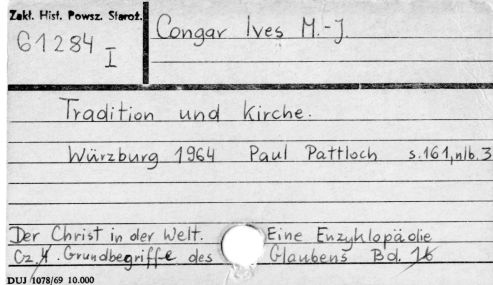 Zakł. Hist. Powsz. Staroż.
61284 I
Congar Ives M.-J.
Tradition und Kirche.
Würzburg 1964 Paul Pattloch s.161,nlb.3
Der Christ in der Welt. Eine Enzyklopädie
Cz. 4. Grundbegriffe des Glaubens Bd. 1b
DUJ 1078/69 10.000